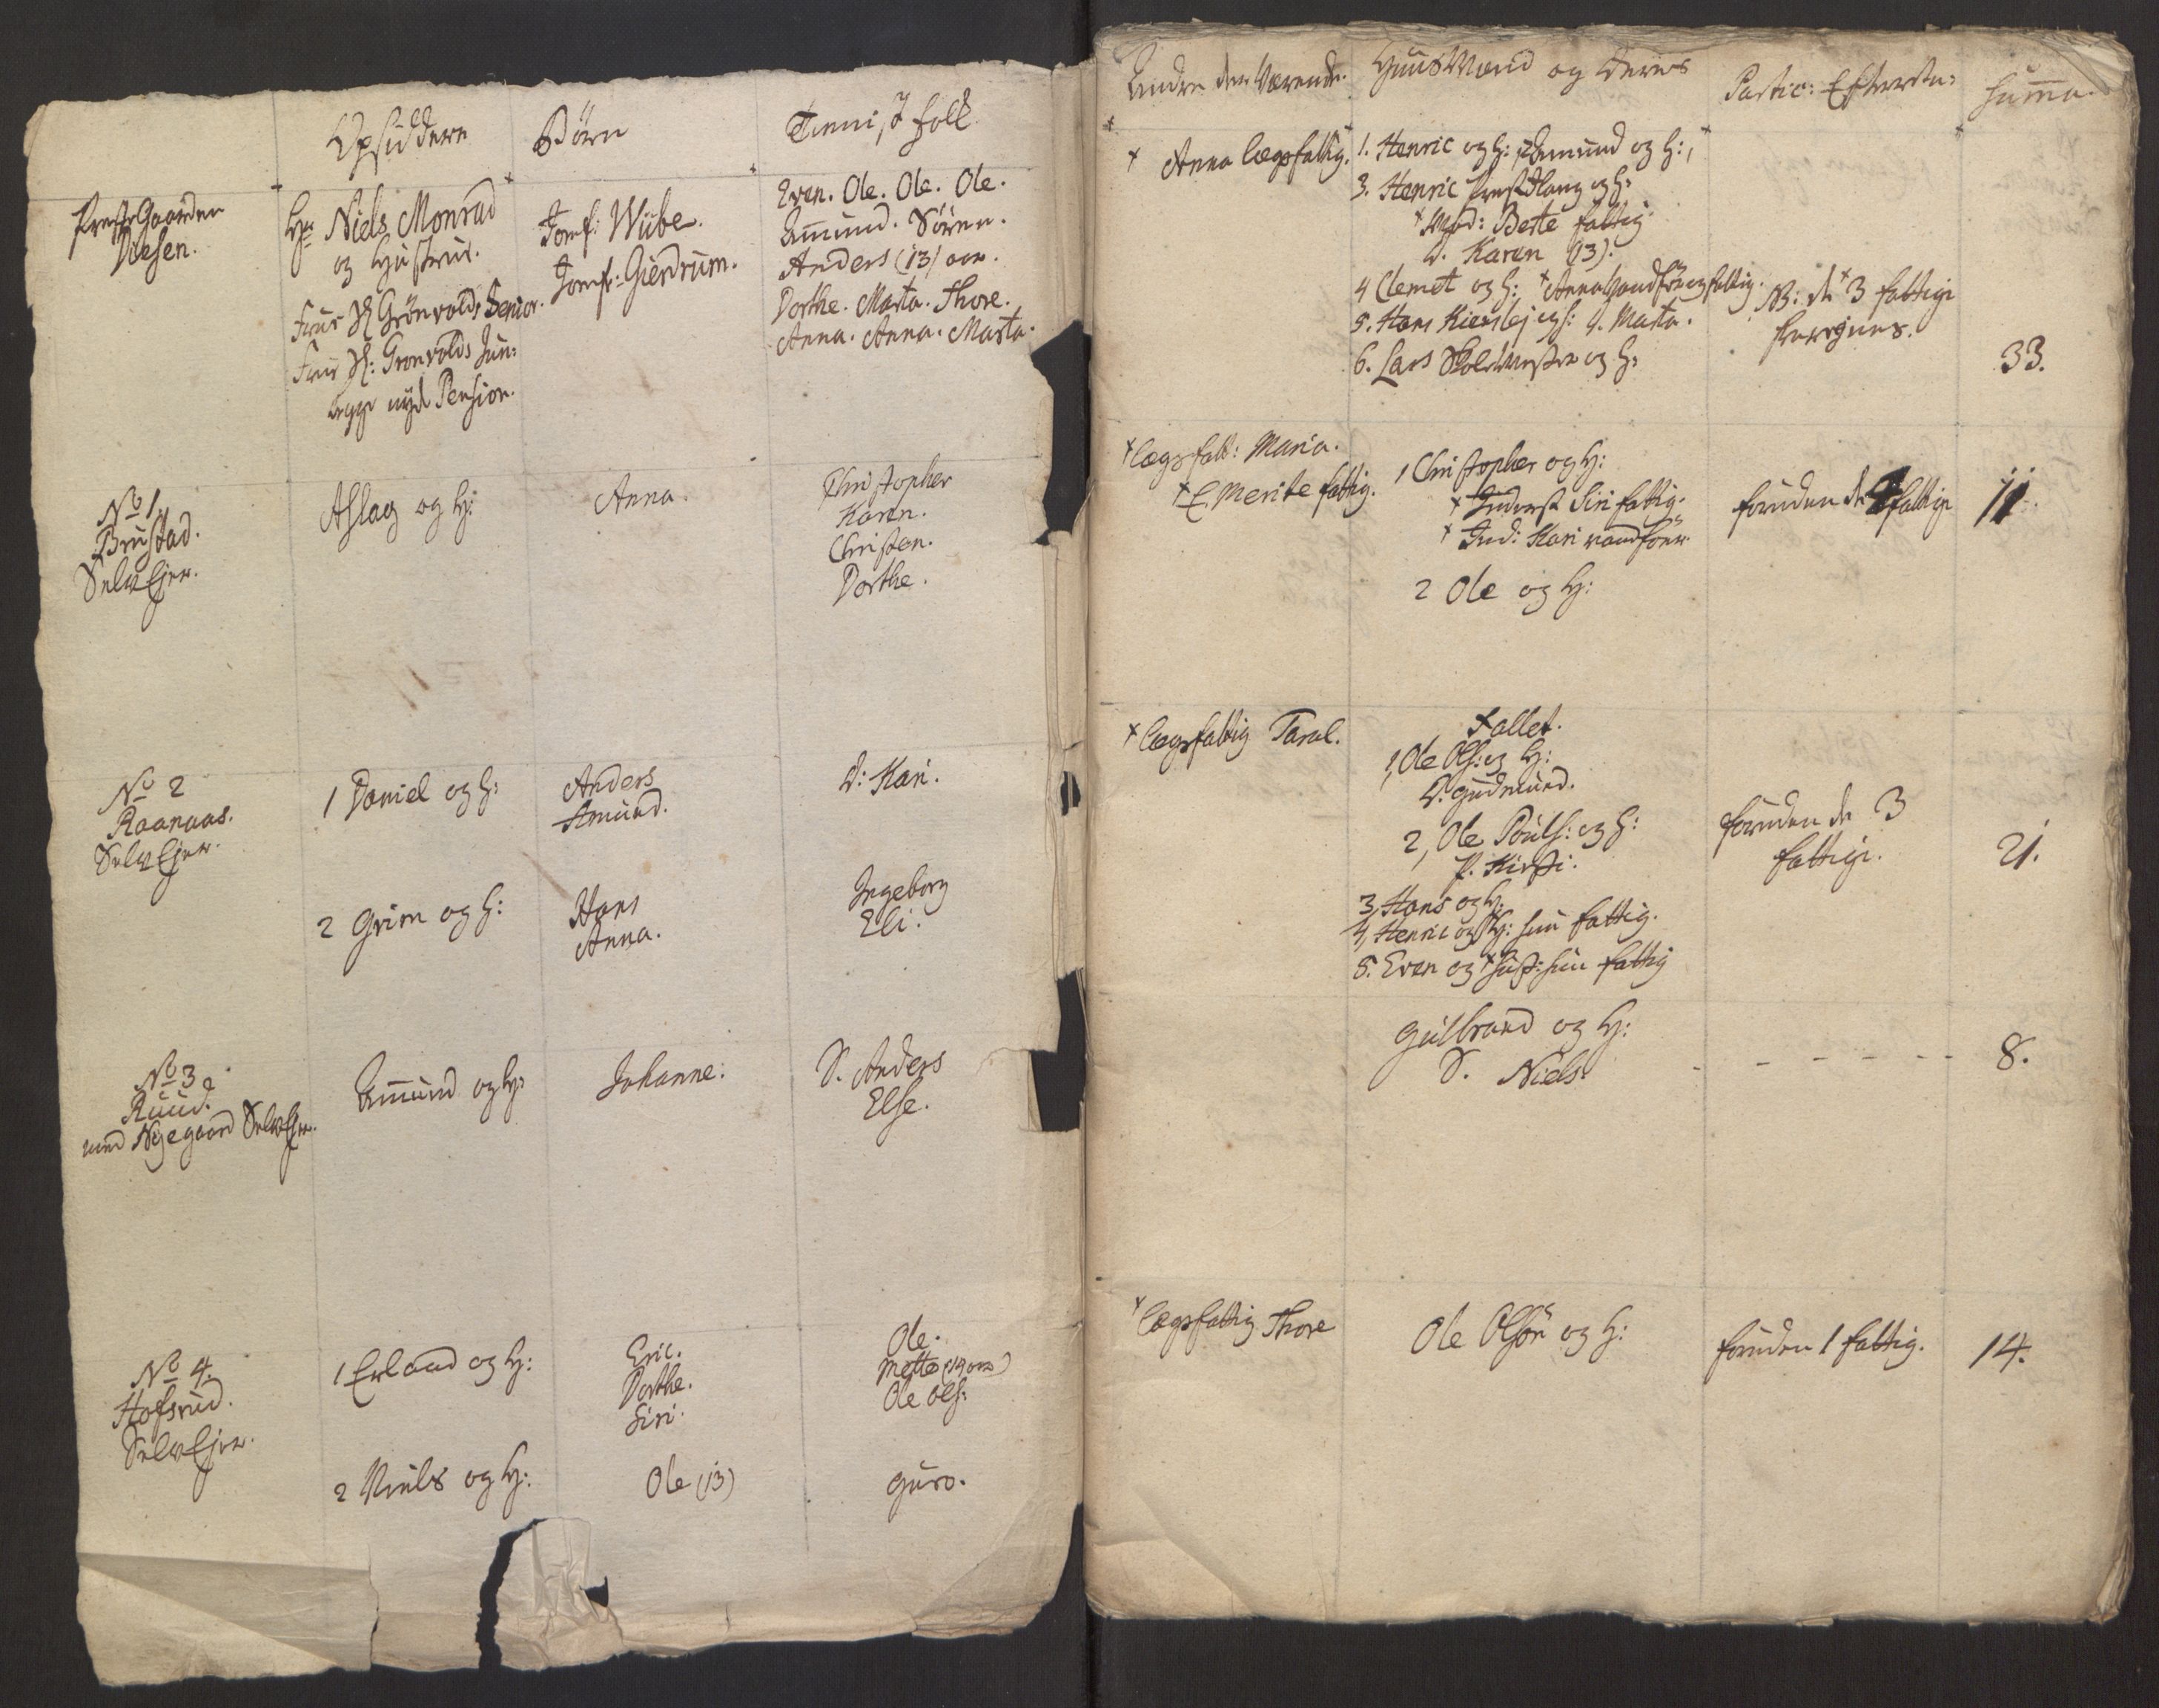 Opsiddere
Børn
Tienniste folk
Præste Gaarden
Næsen.
Hr. Niels Monrad
og Hustrue.
Frue Sl. Grönvolds Senior.
Frue Sl: Gronvolds Jun:
begge nyde Pension.
Jomf: Wiibe.
Jomfr: Gierdrum.
Even. Ole. Ole. Ole.
Amund. Sören.
Anders (13) aar.
Dorthe. Marta. Thore.
Anna. Anna. Marta.
No 1
Brustad.
Selv Ejer.
Aslag og H:
Anna.
Christopher
Karen.
Christen.
Dorthe.
No 2
Raanaas.
Selv Ejer.
1 Daniel og H:
Anders
Amund.
D: Kari.
2 Grim og H:
Hans
Anna.
Ingeborg
Eli.
No 3
Ruud.
med Nÿegaard Selv Ejer.
Amund og H:
Johanne.
S. Anders
Else.
No 4.
Hofsrud.
Selv Ejer.
1 Erland og H:
Eric.
Dorthe.
Siri.
Ole.
Mette
Ole Ols:
2 Niels og H:
Ole (13)
Guro.
Andre der Værende.
Huusmænd og deres
Partic: Efterretn:
Summa.
+ Anna lægsfattig.
1. Henric og H: 2 Amund og H:,
3. Henric og H:
+ Mod: Berte fattig.
D. Karen (13).
4 Clemet og H: + Anna Vandför og fattig.
5. Hans og H: D. Marta.
6. Lars Skolemester og H:
NB: de + 3 fattige
33.
+ lægsfatt: Maria.
+ E. Merite fattig.
1 Christopher og H:
+ Inderst Siri fattig.
+ Ind: Kari vandför.
2 Ole og H:
foruden de 4 fattige
11
+ lægsfattig Taral.
1, Ole Ols: og H:
D. Gudmund.
2, Ole Pouls: og H:
P. Kirsti.
3, Hans og H:
4, Henric og + H: hun fattig.
5. Even og + Hust: hun fattig
foruden de 3
fattige.
21.
Gulbrand og H:
S. Niels.
- - - - - -
8.
+ lægsfattig Thore
Ole Olsön og H:
foruden 1 fattig.
14.